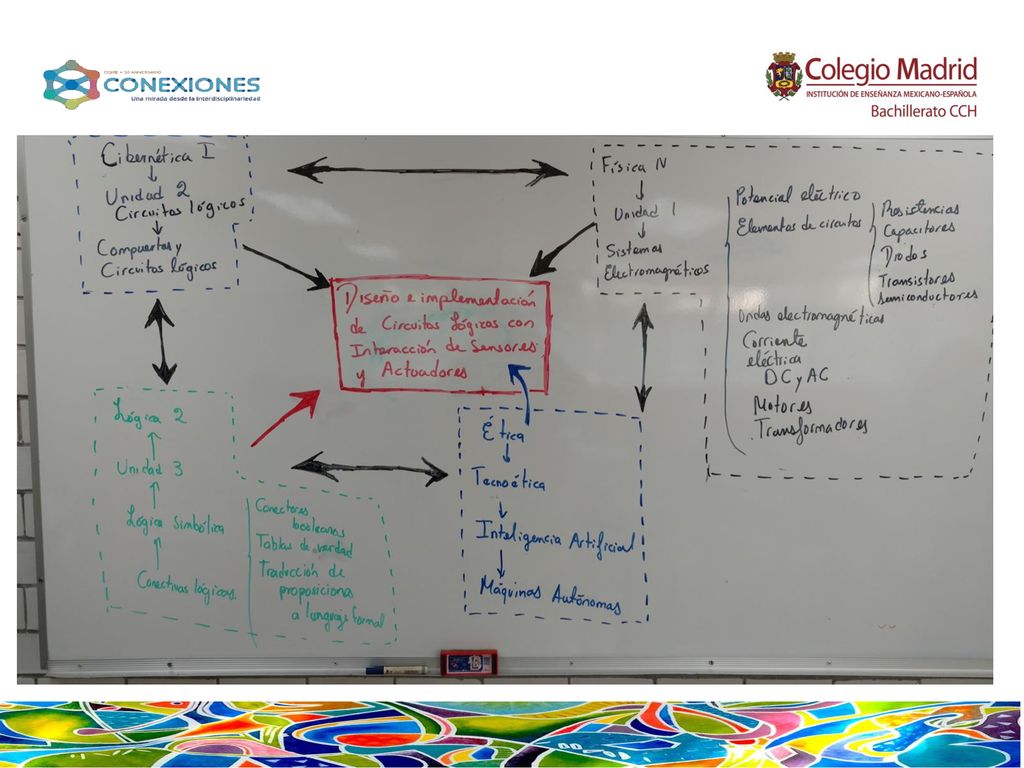 CONEXIONES
Una mirada desde la interdisciplinariedad
Colegio Madrid
INSTITUCIÓN DE ENSEÑANZA MEXICANO-ESPAÑOLA
Bachillerato CCH
Cibernética I
Unidad 2
Circuitos lógicos
Compuertas y
Circuitos lógicos
Física IV
Unidad 1
Sistemas
Electromagnéticos
Potencial eléctrico
Elementos de circuitos
Resistencias
Capacitores
Diodos
Transistores
Semiconductores
Ondas electromagnéticas
Corriente
eléctrica
DC y AC
Motores
Transformadores
Diseño e implementación
de Circuitos Lógicos con
Interacción de Sensores
y Actuadores
Lógica 2
Unidad 3
Lógica Simbólica
Conectivas lógicas.
Conectores
booleanos
Tablas de verdad
Traducción de
proposiciones
a lenguaje formal
Ética
Tecnoética
Inteligencia Artificial
Máquinas Autónomas